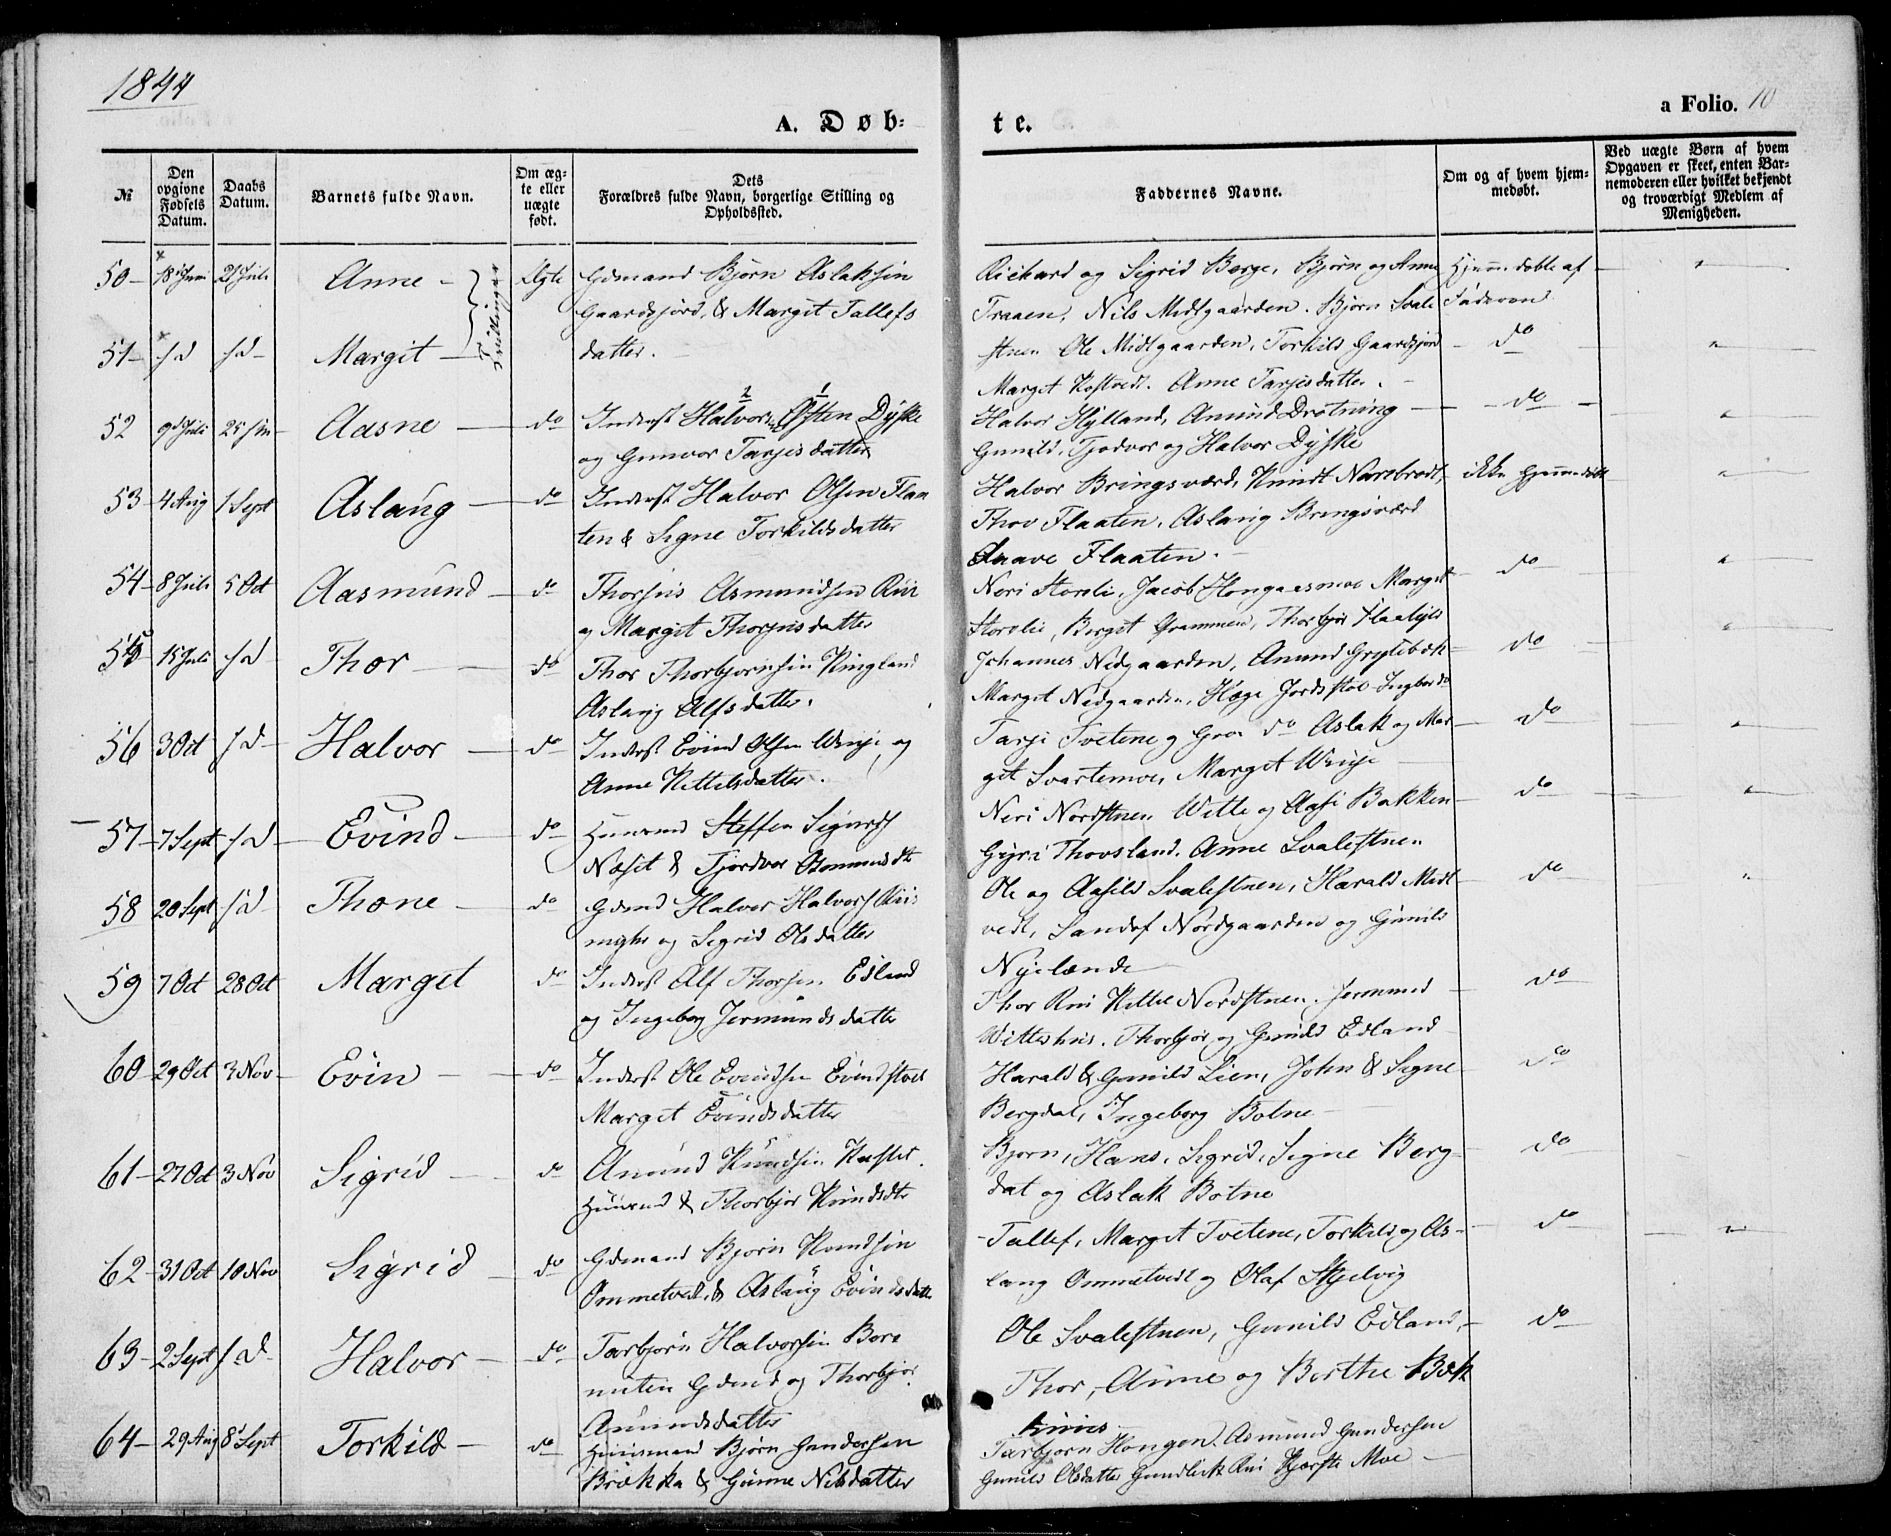 1844
A. Døb-
te.
a Folio. 10
№
Den opgivne Fødsels Datum.
Daabs Datum.
Barnets fulde Navn.
Om ægte eller uægte født.
Dets Forældres fulde Navn, borgerlige Stilling og Opholdssted.
Faddernes Navne.
Om og af hvem hjemmedøbt.
Ved uægte Børn af hvem Opgaven er skeet, enten Barnemoderen eller hvilket bekjendt og troværdigt Medlem af Menigheden.
50 18 Juni 21 Juli Anne Ægte Gdmand Bjørn Aslaksen
Gaardsjord, & Margit Tallefs
Tvillinger
51 s d s d Margit datter.
Richard og Sigrid Berge, Bjørn og Anne
Traaen, Nils Midtgaarden. Bjørn Svale
stuen Ole Midtgaarden, Torkild Gaardsjord
Marget Kostvedt. Anne Tarjeisdatter.
Hjemmedøbte af
Faderen
do
52 9 Juli 25 Aasne do Inderst Halvor Østen Dyske
og Gunvor Tarjeisdatter
Halvor Hylland, Amund Drotning
Gunild, Tjodvor og Halvor Dyske
do
53 4 Aug 1 Sept Aslaug do Inderst Halvor Olsen Flaa
ten & Signe Torkildsdatter
Halvor Bringsværd, Knudt Narebrodt,
Thov Flaaten, Aslaug Bringsværd
Aaave Flaaten.
ikke hjemmedøbt
54 8 Juli 5 Oct Aasmund do Asmundsen Rui
og Marget
Neri Storlie, Jacob Marget
Storlie, Berget Grammen, Thorbjør
do
55 15 Juli s d Thor do Thor Thorbjørnsen Ringland
Aslaug Alfsdatter.
Johannes Nedgaarden, Amund Grytebek
Marget Nedgaarden, Hæge Jordstøl Ingbor do
do
56 3 Oct s d Halvor do Inderst Evind Olsen og
Anne Kittelsdatter.
Tarje Tvetene og Groe do Aslak og Mar
get Svartemoe, Marget
do
57 7 Sept s d Evind do Huusmd Steffen
Næset & Tjordvor
Neri Nordstuen Witte og Aase Bakken
Gyri Thovsland. Anne Svalestuen
do
58 20 Sept s d Thone do Gdmd Halvor Halvors
og Sigrid Olsdatter
Ole og Aasild Svalestuen, Harald Midt
vedt, Sandof Nordgaarden og Gunild
Nyelænde
do
59 7 Oct 28 Oct Marget do Inderst Alf Edland
og Ingeborg Jermundsdatter
Thor Rui Kittil Nordstuen. Jermund
Wittershus. Thorbjør og Gunild Edland
do
60 29 Oct 3 Nov Evin do Inderst Ole Evindsen Evindstved
Marget Evindsdatter
Harald & Gunild Lien, John & Signe
Bergdal, Ingeborg Botne
do
61 27 Oct 3 Nov Sigrid do Amund Knudsen
Huusmd & Thorbjør Knudsdtr
Bjorn, Hans, Sigrid, Signe Berg
dal og Aslak Botne
do
62 31 Oct 10 Nov Sigrid do Gdmand Bjørn Knudsen
Ommetvedt & Aslaug Evindsdatter
Tallef, Marget Tvetene, Torkild og As-
laug Ommetvedt og Olaf Skjelvig
do
63 2 Sept s d Halvor do Tarbjorn Halvorsen Bore
muten Gdmd og Thorbjør
Amundsdatter
Ole Svalestuen, Gunild Edland,
Thor, Anne og Berthe Bek
do
64 29 Aug 8 Sept Torkild do Huusmand Bjørn Gundersen
Brækka & Gunne Nilsdatter
Tarbjorn Hougen. Asmund Gundersen
Gunild Olsdatter Rui Moe